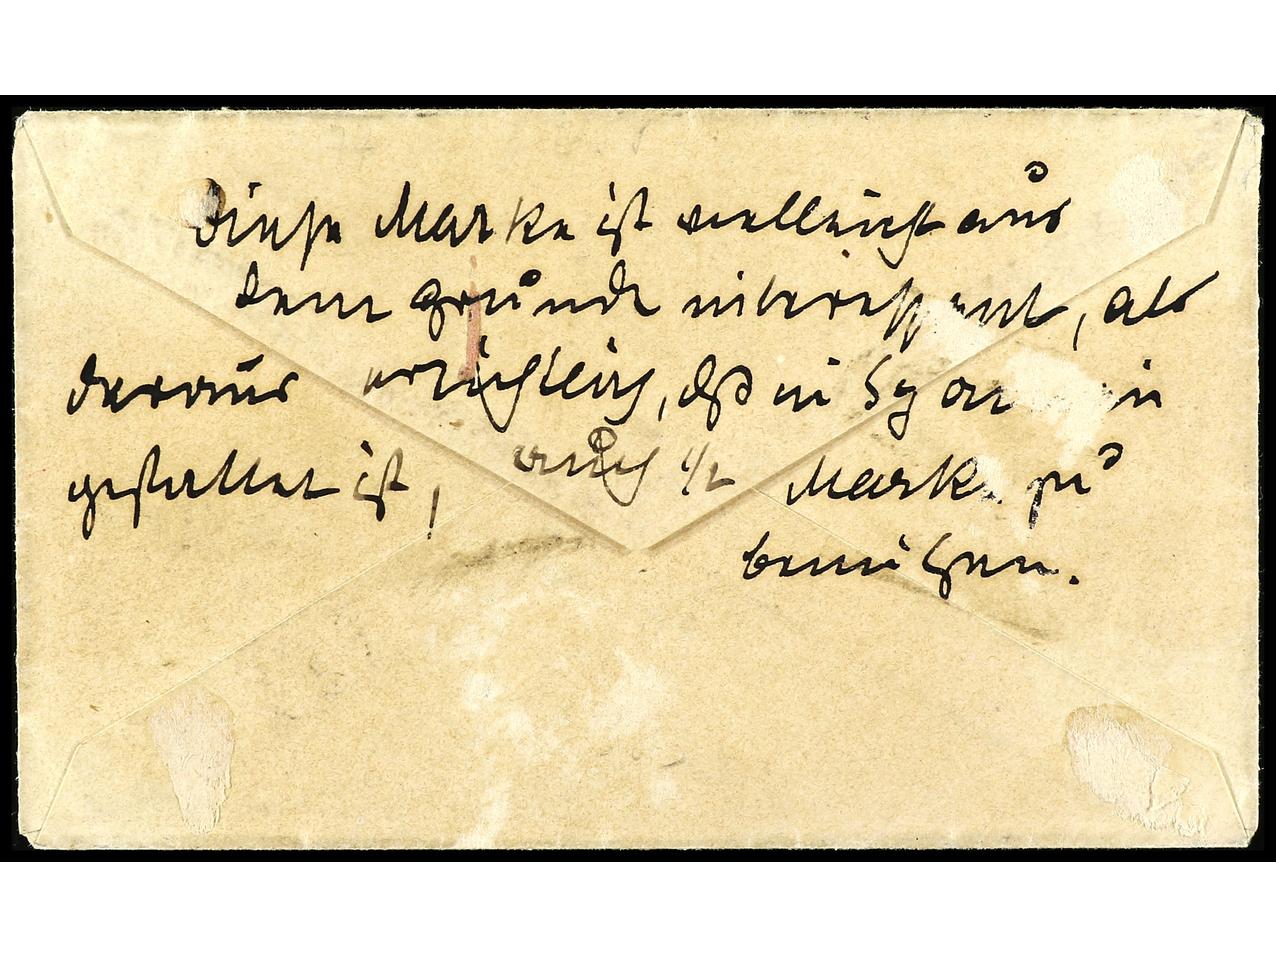 Diese Marke ist vielleicht aus
dem Grunde interessant, als
daraus ersichtlich, daß in
gestattet ist, auch 1/2 Marke zu
benützen.